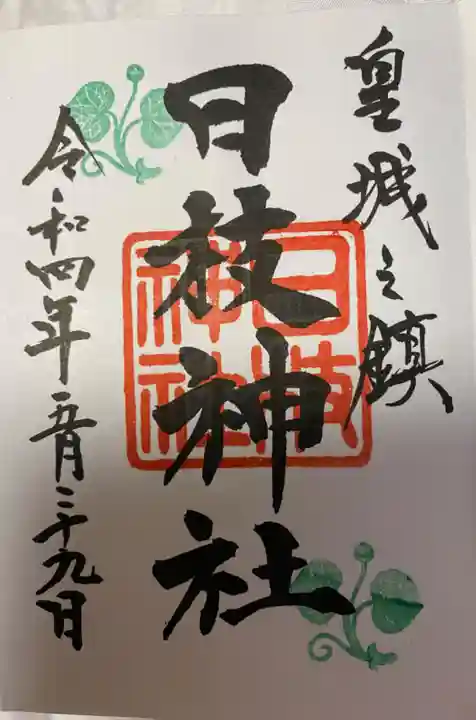 皇城之鎮
日枝神社
日枝神社
令和四年五月二十九日